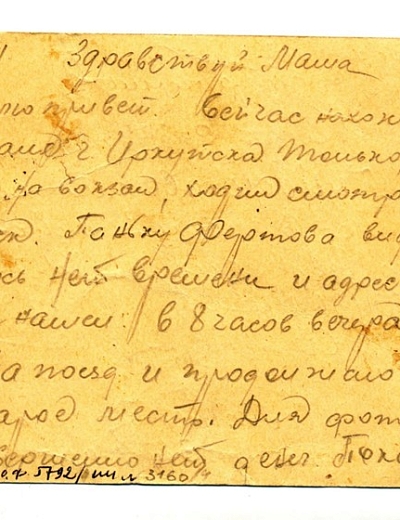 Здравствуй Маша
привет. Сейчас нахож
г Иркутска Только
на вокзал, ходил смотр
Паньку Фертова ви
сь нет времени и адрес
нашел. в 8 часов вечера
а поезд и продолжаю
место. Для фот
вершенно нет денг. Пока
5792/ 3160/